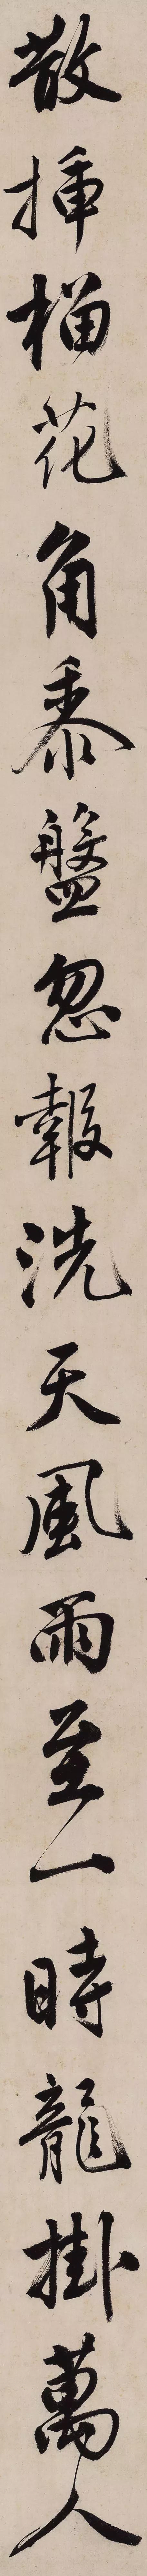 散揷榴花角黍盤忽報洗天風雨至一時龍掛萬人